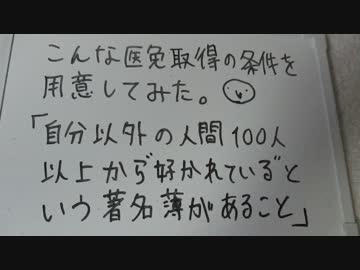 こんな医免取得の条件を
用意してみた。
「自分以外の人間100人
以上から"好かれている"と
いう著名薄があること」